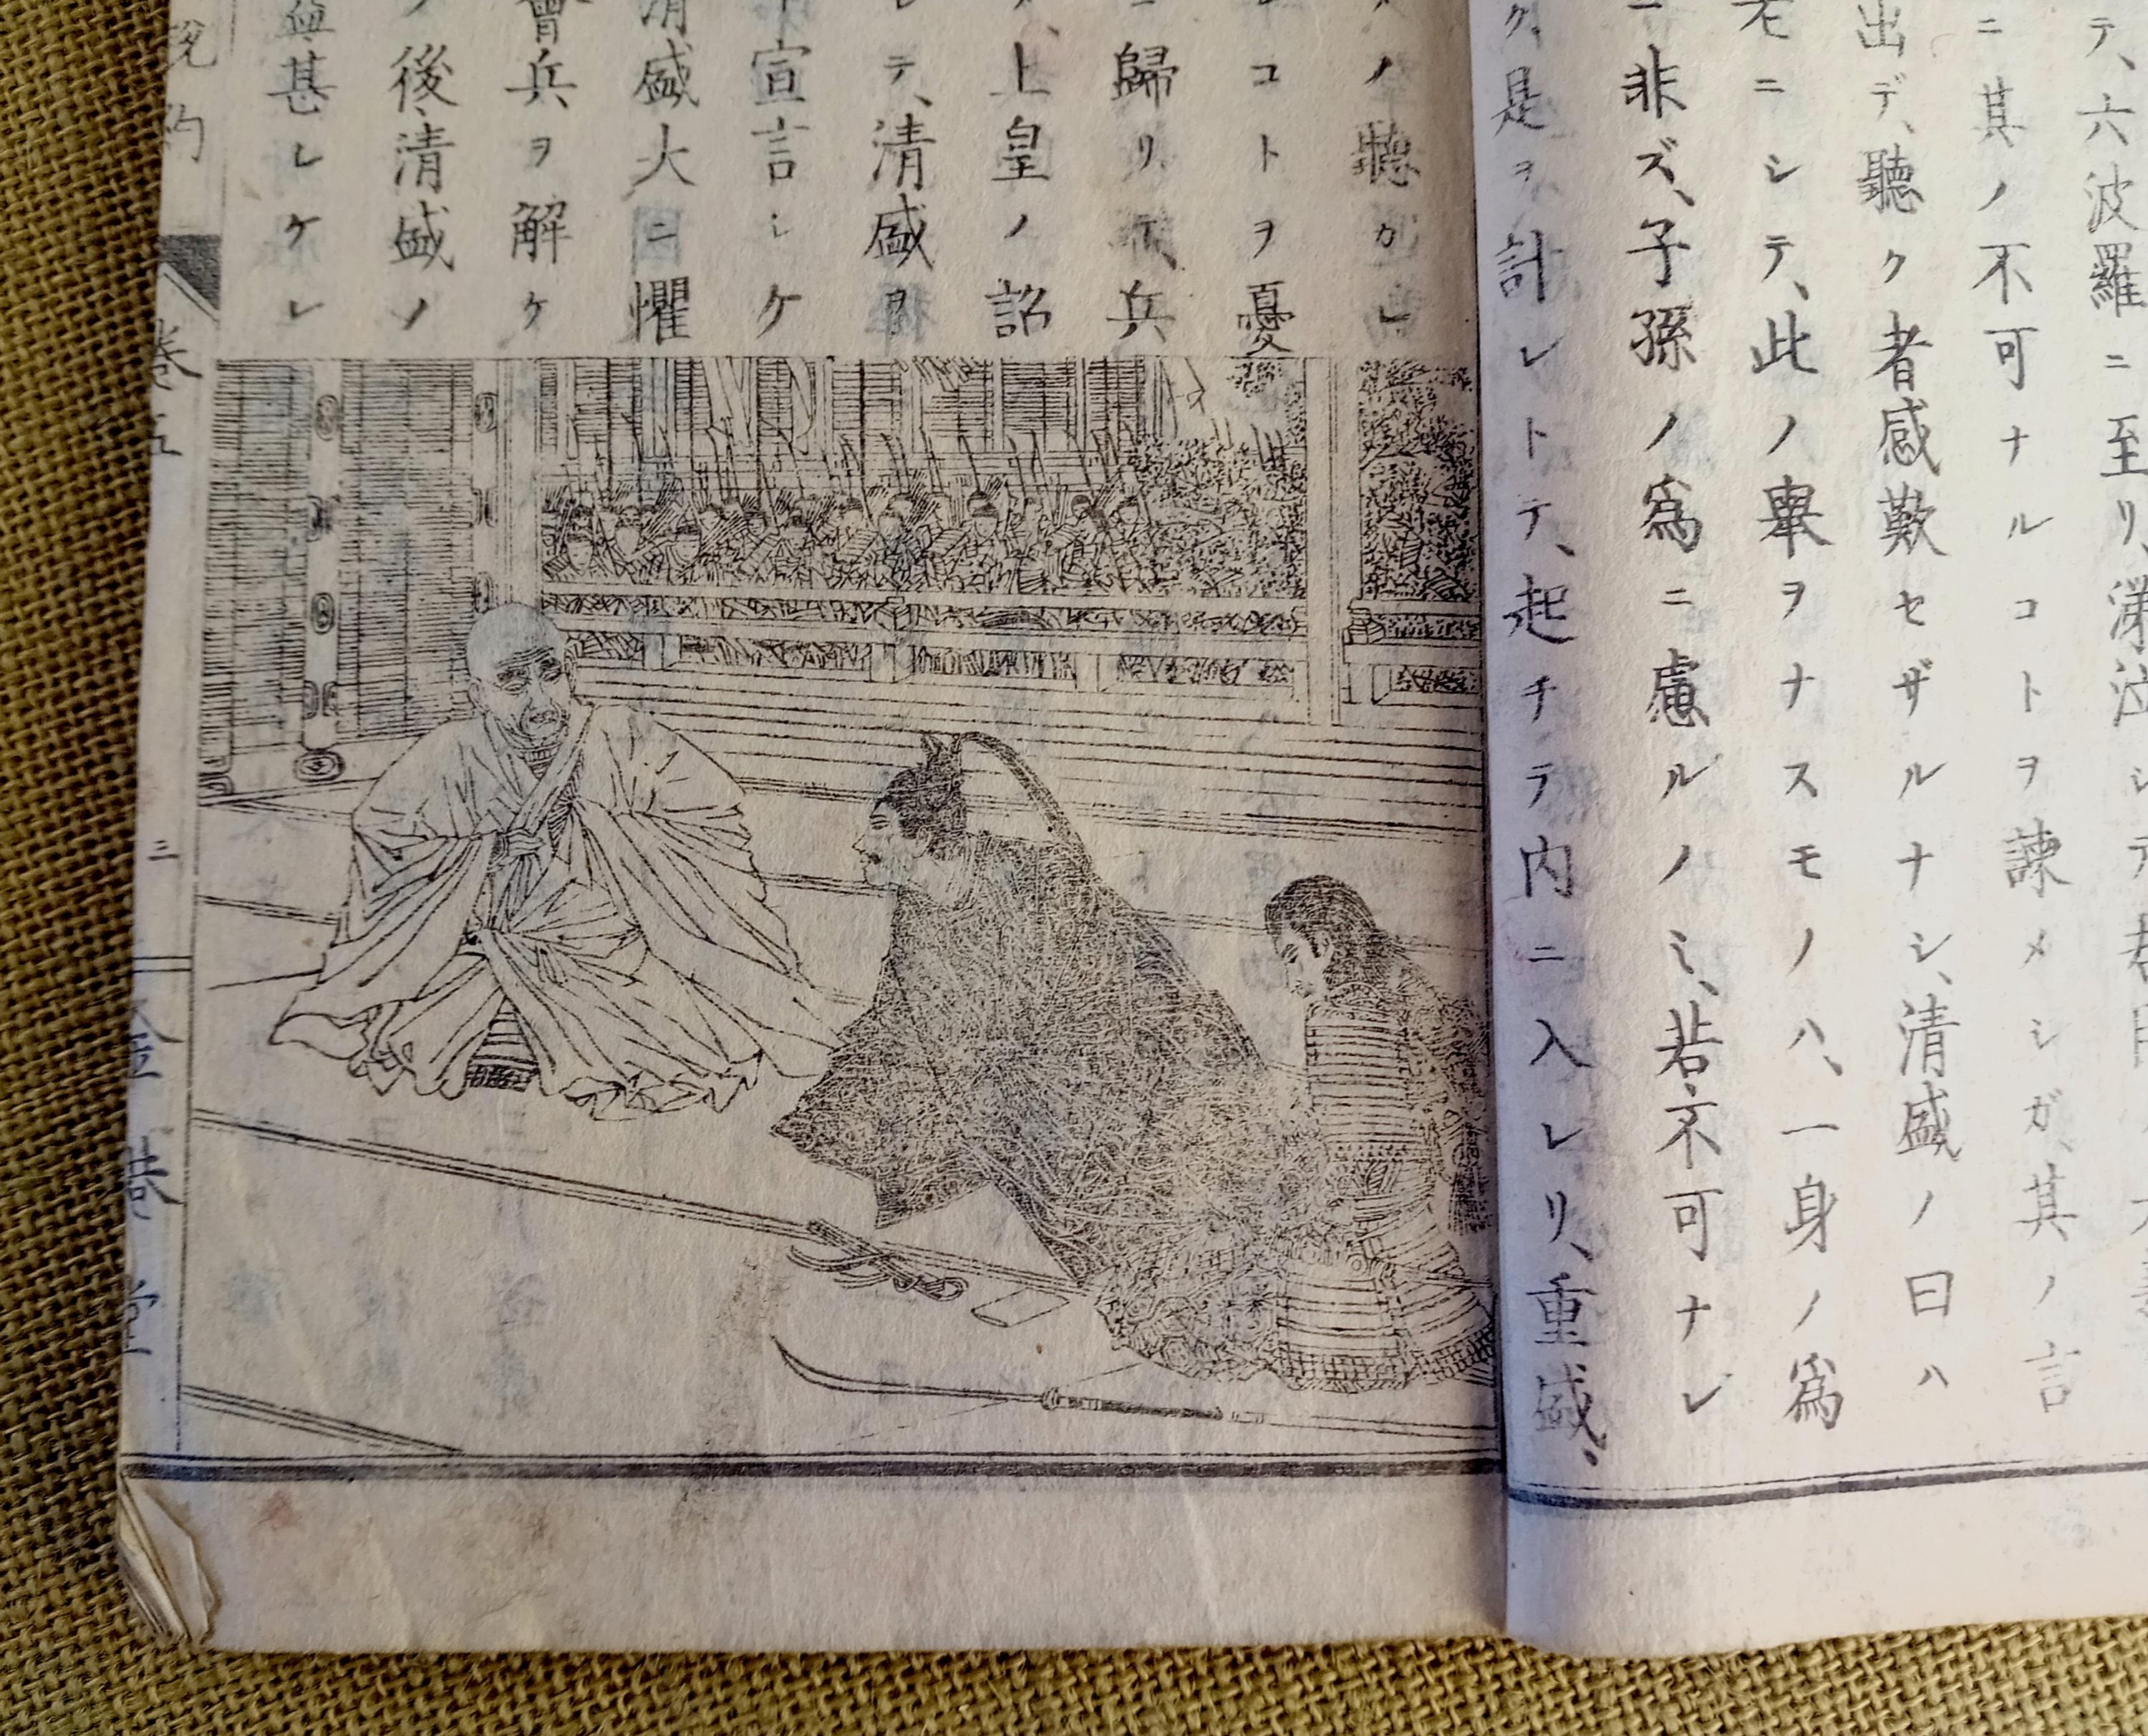 テ、六波羅ニ至リ、涕泣シテ
ニ其ノ不可ナルコトヲ諫メシガ、其ノ言
出デ、聽ク者感歎セザルナシ、清盛ノ曰ハ
老ニシテ、此ノ擧ヲナスモノハ、一身ノ爲
ニ非ズ、子孫ノ爲ニ慮ルノミ、若、不可ナレ
ク、是ヲ計レトテ、起チテ内ニ入レリ、重盛、
ノ聽カレ
コトヲ憂
ニ歸リテ、兵
、上皇ノ詔
レテ、清盛ヲ
宣言シケ
清盛大ニ懼
曾兵ヲ解ケ
後、清盛ノ
益甚レケレ
説約
卷五
三
金港堂